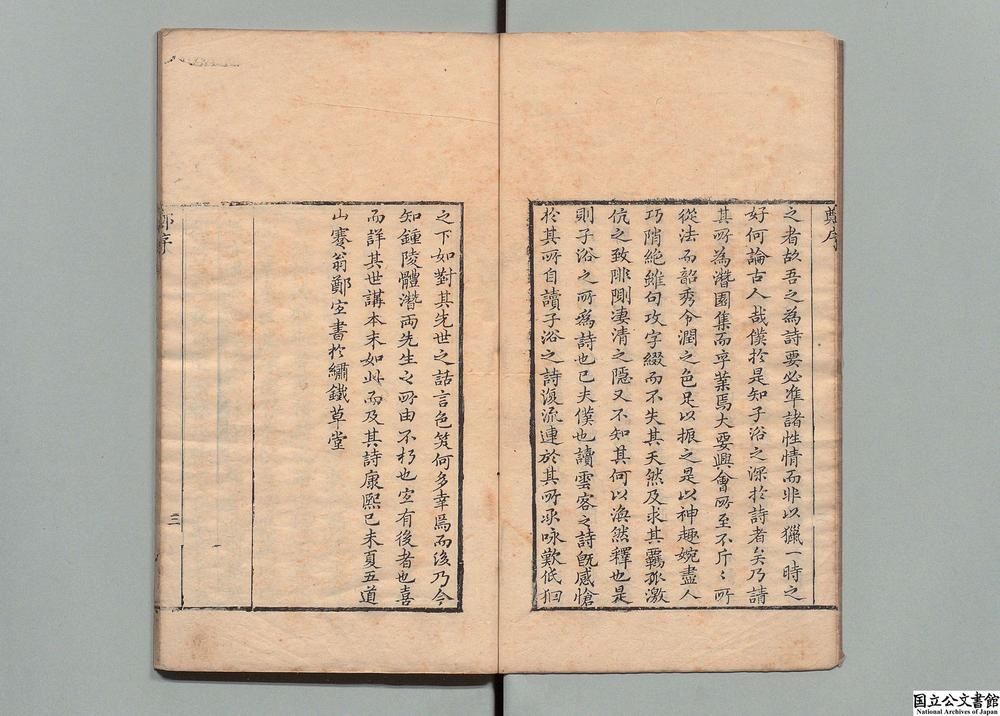 鄭序
之者故吾之為詩要必准諸性情而非以獵一時之
好何論古人哉僕於是知子浴之深於詩者矣乃請
其所為潛園集而卒業焉大要興會所至不斤〻所
從法而韶秀令潤之色足以振之是以神趣婉盡人
巧陗絶雖句攻字綴而不失其天然及求其羈孤激
伉之致陫惻淒清之隱又不知其何以渙然釋也是
則子浴之所為詩也已夫僕也讀雲客之詩旣感愴
於其所自讀子浴之詩復流連於其所承咏歎低徊
之下如對其先世之詁言色笑何多幸焉而後乃今
知鍾陵體潛兩先生之所由不朽也寔有後者也喜
而詳其世講本末如此而及其詩康熙已未夏五道
山蹇翁鄭寔書於繡鐵草堂
鄭序
三
国立公文書館
National Archives of Japan